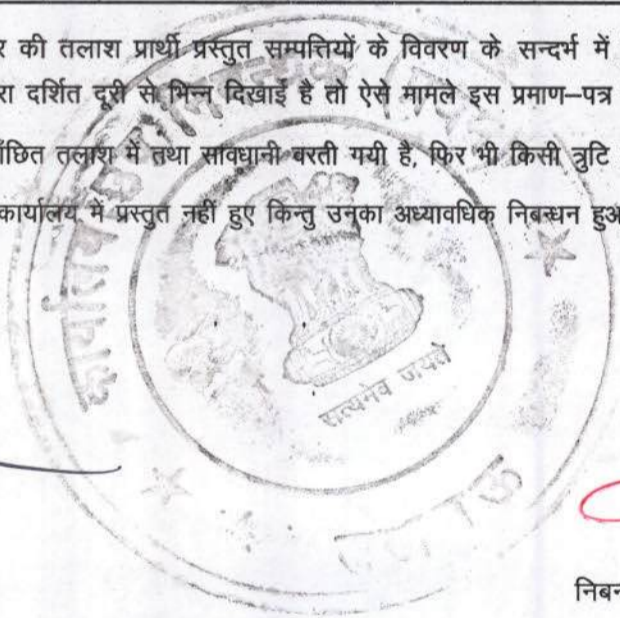 र की तलाश प्रार्थी प्रस्तुत सम्पत्तियों के विवरण के सन्दर्भ में
रा दर्शित दूरी से भिन्न दिखाई है तो ऐसे मामले इस प्रमाण–पत्र
ांछित तलाश में तथा सावधानी बरती गयी है, फिर भी किसी त्रुटि
कार्यालय में प्रस्तुत नहीं हुए किन्तु उनका अध्यावधिक निबन्धन हुअ
कार्यालय
सत्यमेव जयते
निबन